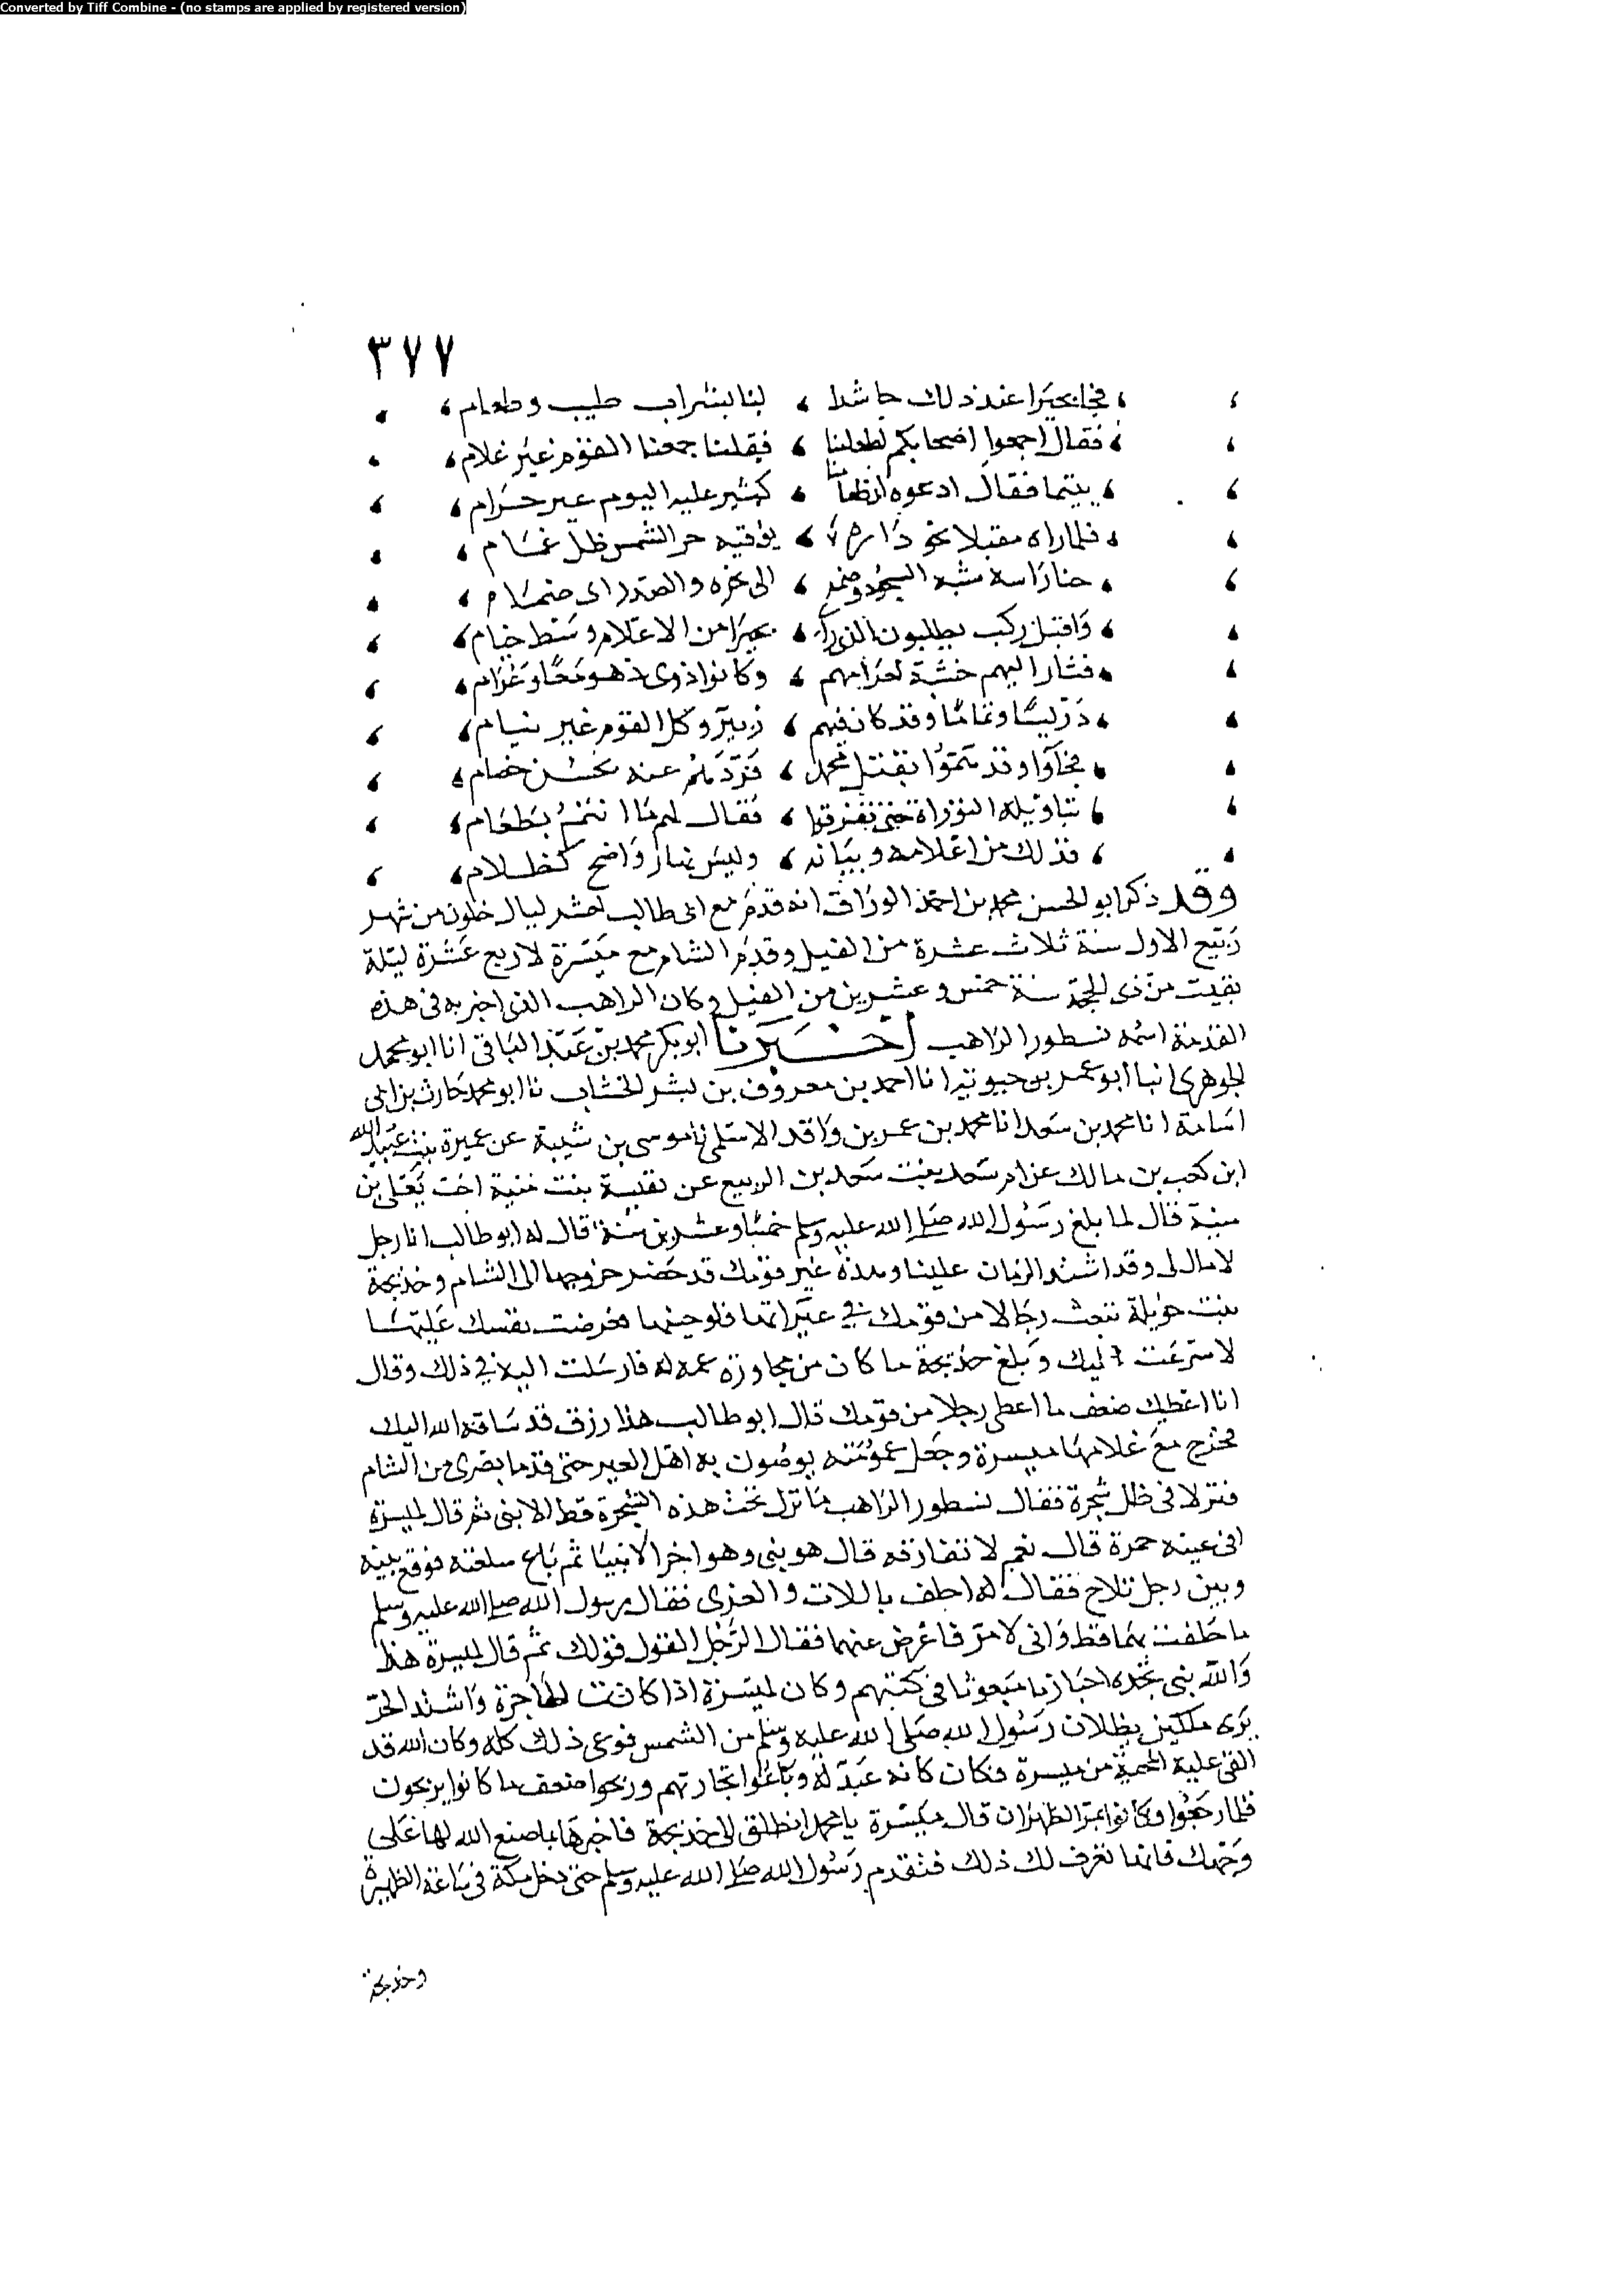 Converted by Tiff Combine - (no stamps are applied by registered version)
٣٧٧
فجا بحيرا عند ذلك حاشدا ، لنا بشراب طيب وطعام ،
فقال اجمعوا اصحابكم لطعامنا ، فقلنا جمعنا القوم غير غلام ،
يتيما فقال ادعوه ان طعامنا ، كثير عليه اليوم غير حرام ،
فلما راه مقبلا نحو داره ، يوقيه حر الشمس ظل غمام ،
حنا راسه شبه السجود وضمه ، الى نحره والصدر اى ضمام ،
واقبل ركب يطلبون الذى راى ، بحيرا من الاعلام وسط خيام ،
فثار اليهم خشية لعرامهم ، وكانوا ذوى دهو معا وغرام ،
دريسا وتماما وقد كان فيهم ، زبير وكل القوم غير نيام ،
فجاوا وقد هموا بقتل محمد ، فردهم عنه بحسن خصام ،
بتاويله التوراة حتى تفرقوا ، فقال لهم ما انتم بطغام ،
فذلك من اعلامه وبيانه ، وليس نهار واضح كظلام ،
وقد ذكر ابو الحسن محمد بن احمد الوراق انه قدم مع ابى طالب لعشر ليال خلون من شهر
ربيع الاول سنة ثلاث عشرة من الفيل وقدم الشام مع ميسرة لاربع عشرة ليلة
بقيت من ذى الحجة سنة خمس وعشرين من الفيل وكان الراهب الذى اخبر به فى هذه
القدمة اسمه نسطور الراهب اخبرنا ابو بكر محمد بن عبد الباقى انا ابو محمد
الجوهرى انبا ابو عمر بن حيوية انا احمد بن معروف بن بشر الخشاب نا ابو محمد حارث بن ابى
اسامة انا محمد بن سعد انا محمد بن عمر بن واقد الاسلمى نا موسى بن شيبة عن عميرة بنت عبيد الله
ابن كعب بن مالك عن ام سعد بنت سعد بن الربيع عن نفيسة بنت منية اخت يعلى بن
منية قال لما بلغ رسول الله صلى الله عليه وسلم خمسا وعشرين سنة قال له ابو طالب انا رجل
لا مال لى وقد اشتد الزمان علينا وهذه عير قومك قد حضر خروجها الى الشام وخديجة
بنت خويلد تبعث رجالا من قومك فى عيراتها فلو جئتها فعرضت نفسك عليها
لاسرعت اليك وبلغ خديجة ما كان من محاورة عمه له فارسلت اليه فى ذلك وقال
انا اعطيك ضعف ما اعطى رجلا من قومك قال ابو طالب هذا رزق قد ساقه الله اليك
فخرج مع غلامها ميسرة وجعل عمومته يوصون به اهل العير حتى قدما بصرى من الشام
فنزلا فى ظل شجرة فقال نسطور الراهب ما نزل تحت هذه الشجرة قط الا نبى ثم قال لميسرة
افى عينه حمرة قال نعم لا تفارقه قال هو نبى وهو اخر الانبيا ثم باع سلعته فوقع بينه
وبين رجل تلاح فقال له احلف باللات والعزى فقال رسول الله صلى الله عليه وسلم
ما حلفت بهما قط وانى لامر فاعرض عنهما فقال الرجل القول قولك ثم قال لميسرة هذا
والله نبى تجده احبارنا منعوتا فى كتبهم وكان ميسرة اذا كانت الهاجرة واشتد الحر
يرى ملكين يظلان رسول الله صلى الله عليه وسلم من الشمس فوعى ذلك كله وكان الله قد
القى عليه المحبة من ميسرة فكان كانه عبد له وباعوا تجارتهم وربحوا ضعف ما كانوا يربحون
فلما رجعوا وكانوا بمر الظهران قال ميسرة يا محمد انطلق الى خديجة فاخبرها بما صنع الله لها على
وجهك فانها تعرف لك ذلك فتقدم رسول الله صلى الله عليه وسلم حتى دخل مكة فى ساعة الظهيرة
وخديجة